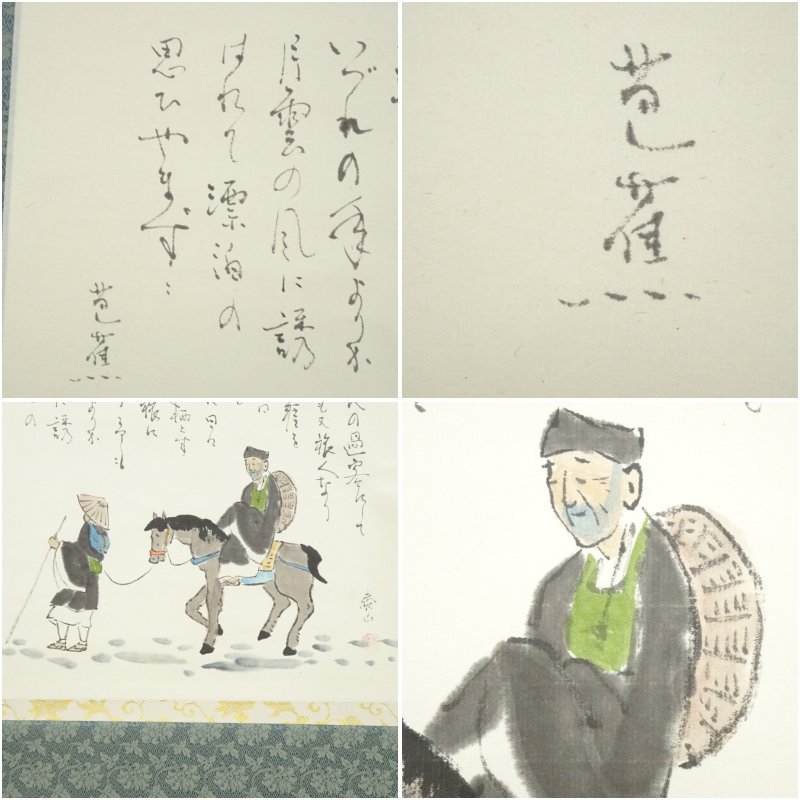 いづれの年よりか
片雲の風に誘
はれて漂泊の
思ひやまず〻
芭蕉
芭蕉
代の過客にして
も又旅人なり
涯を
栖とす
旅に
よりか
に誘
の
泰山